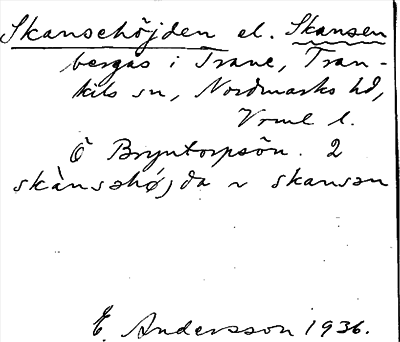 Skansehöjden el. Skansen
bergås i Trane, Tran-
kils sn, Nordmarks hd,
Vrml l.
Ö Bryntorpsön. 2
skànsəhø̦jda ~ skansən
E. Andersson 1936.